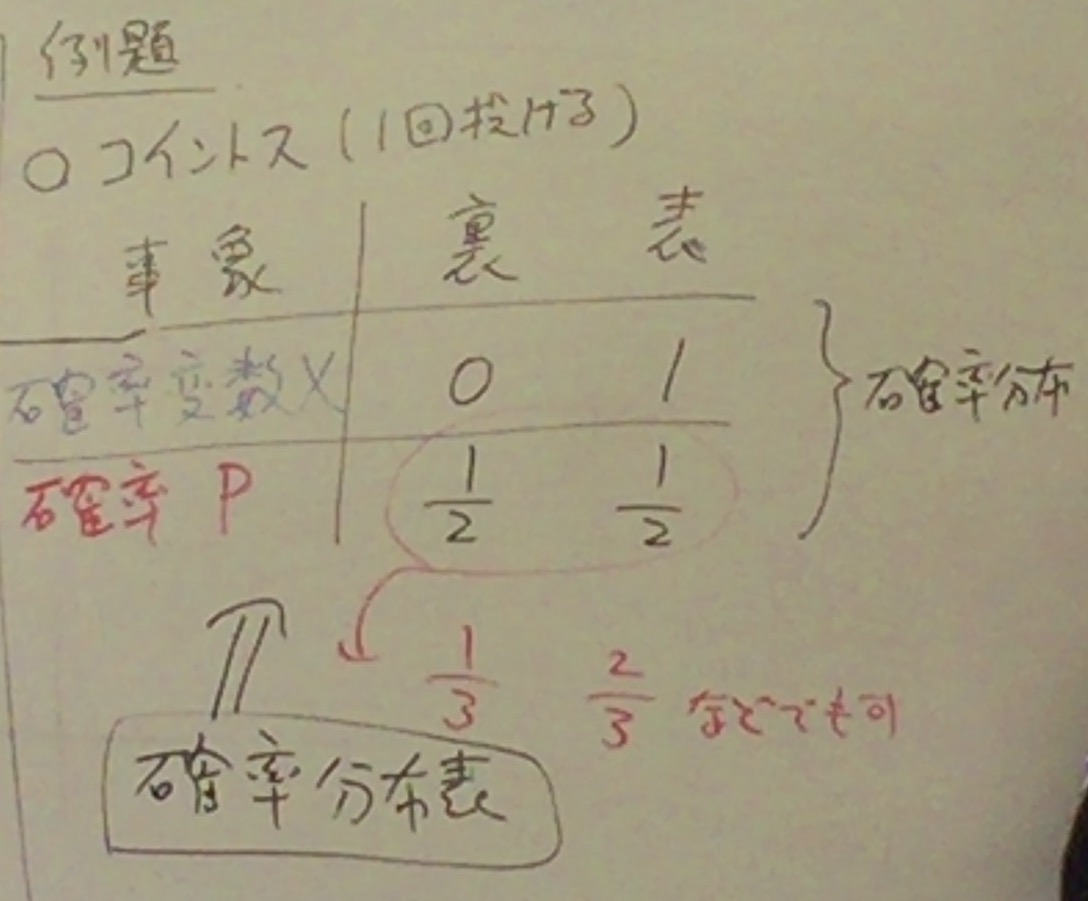 例題
○コイントス(1回投げる)
事象 裏 表
確率変数X 0 1
確率分布
確率 P 1/2 1/2
1/3 2/3 などでも可
確率分布表